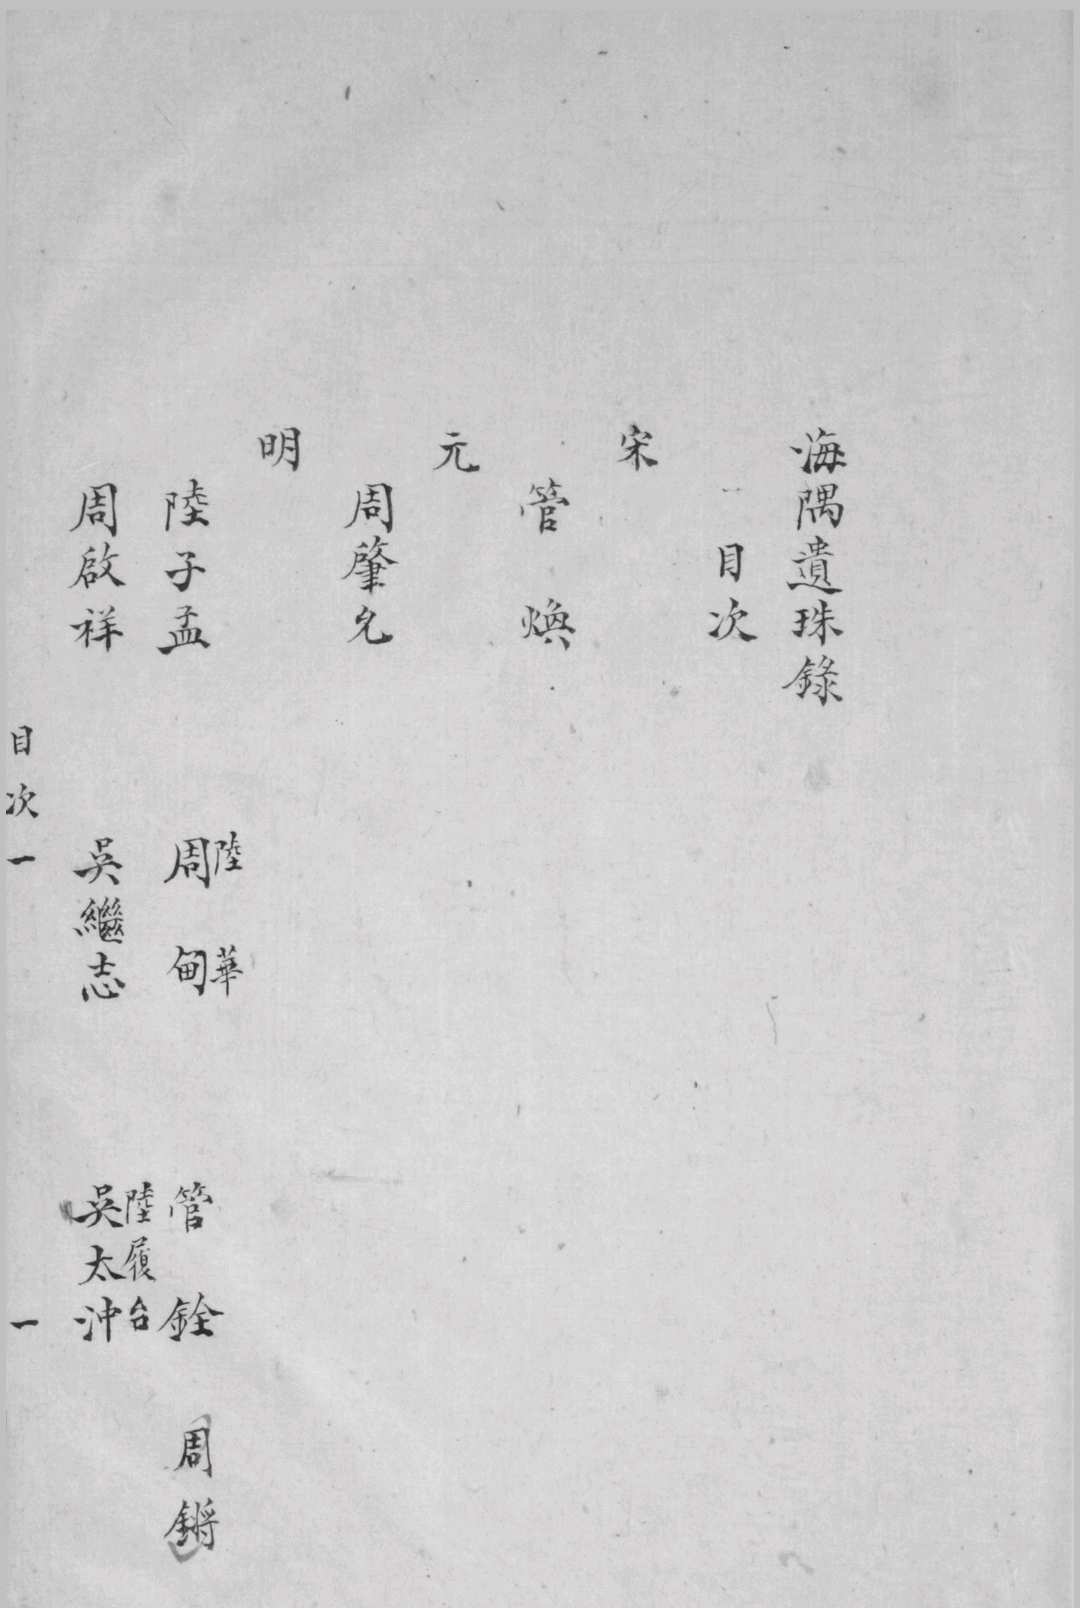 海隅遺珠錄
目次
宋
管煥
元
周肇允
明
陸子孟 陸華 周甸 管銓 周鏘
周啟祥 吳繼志 陸履台 吳太沖
目次一 一